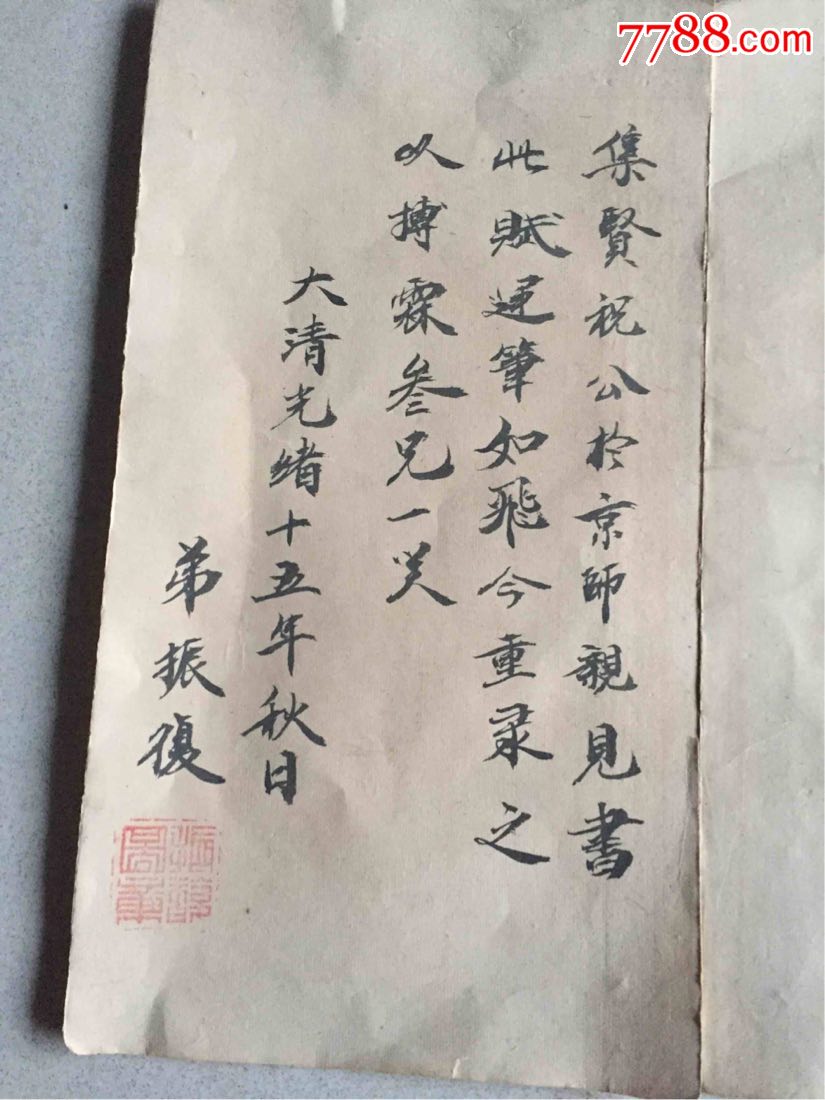 7788.com
集賢祝公於京師親見書
此賦運筆如飛今重录之
以搏霖叁兄一笑
大清光緒十五年秋日
弟振復